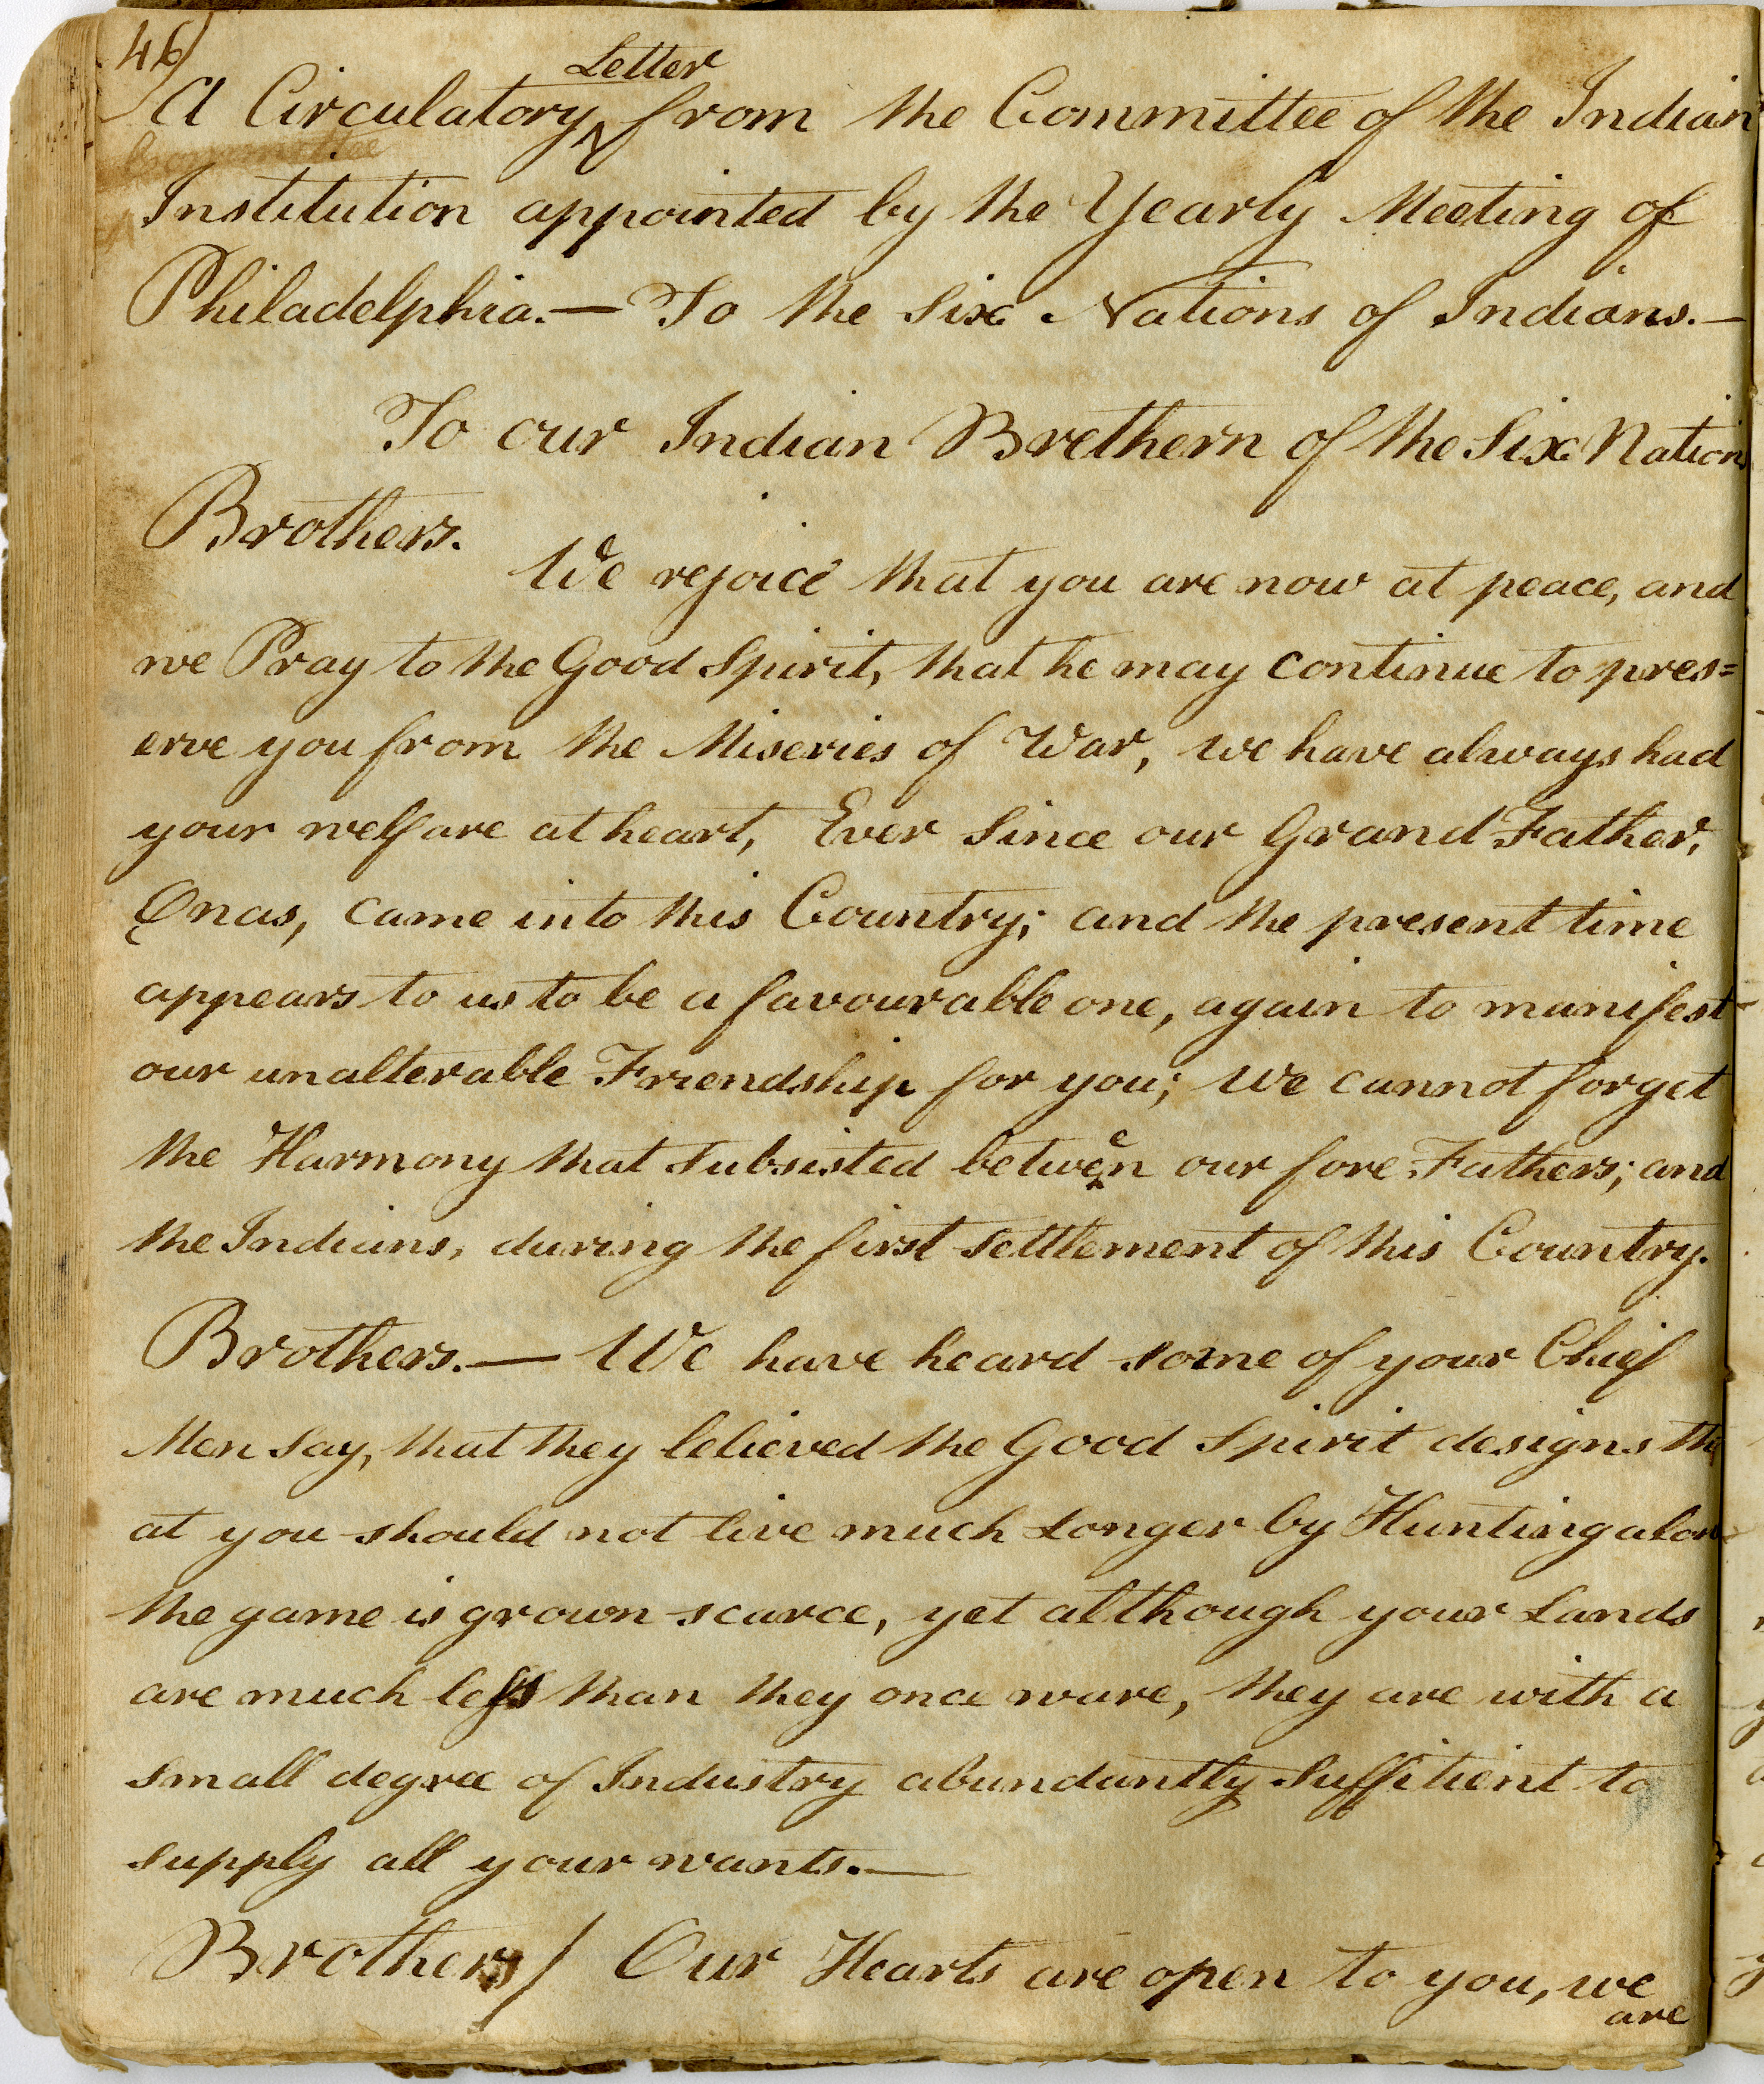 46
Letter
A Circulatory from the Committee of the Indian
Institution appointed by the Yearly Meeting of
Philadelphia.— To the Six Nations of Indians.—
To our Indian Brethern of the Six Nation
Brothers.
We rejoice that you are now at peace, and
we Pray to the Good Spirit, that he may continue to pres=
erve you from the Miseries of War, we have always had
your welfare at heart, Ever Since our Grand Father,
Onas, came into this Country; and the present time
appears to us to be a favourable one, again to manifest
our unalterable Friendship for you; we cannot forget
the Harmony that subsisted between our fore Fathers; and
the Indians, during the first settlement of this Country.
Brothers.— We have heard some of your Chief
Men Say, that they lelieved the Good Spirit designs th
at you should not live much Longer by Hunting alon
the game is grown scarce, yet although your Lands
are much less than they once ware, they are with a
small degree of Industry abundantly Suffitient to
supply all your wants.—
Brothers/ Our Hearts are open to you, we
are